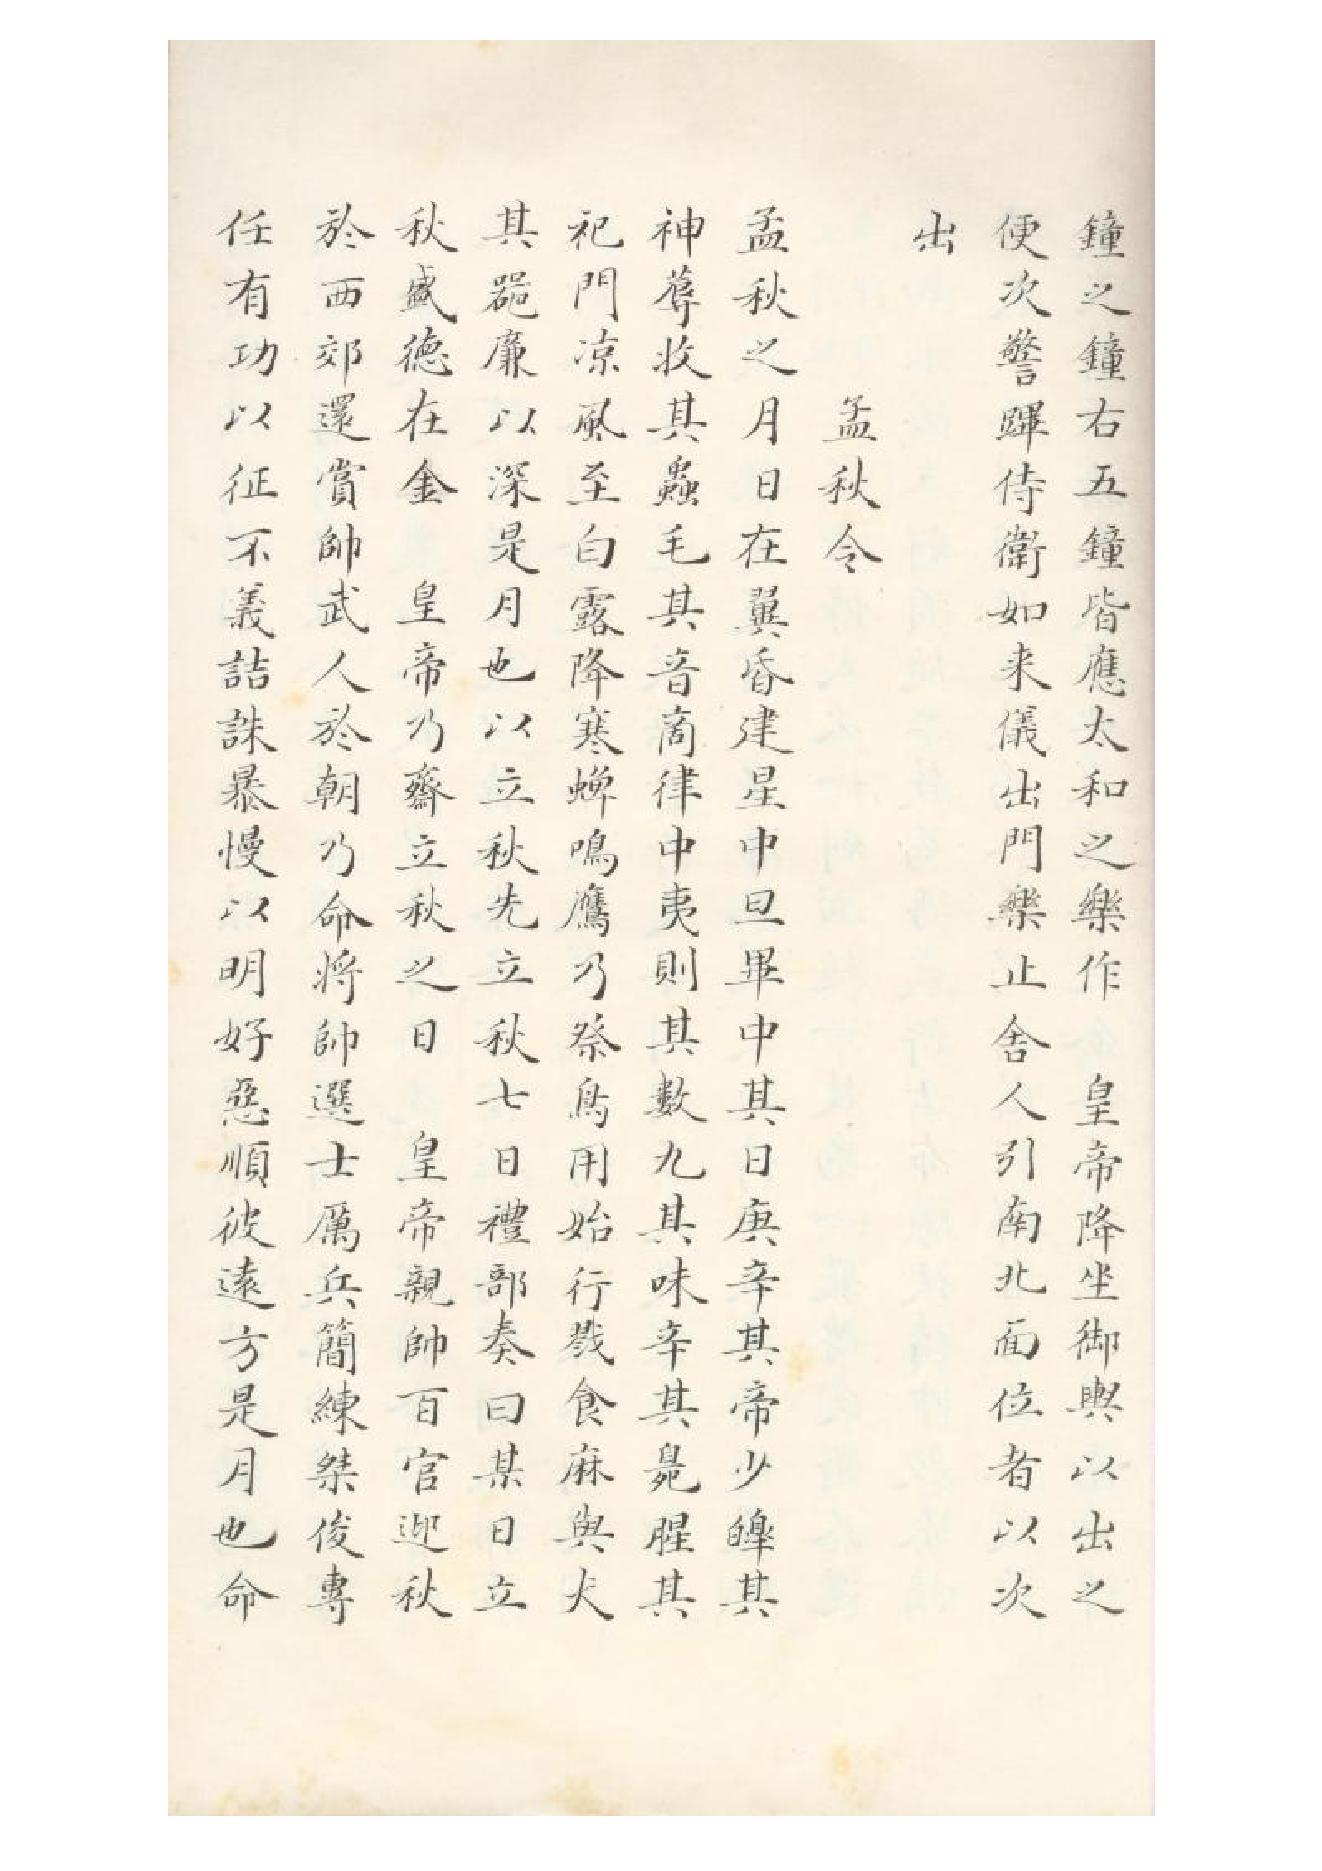 鐘之鐘右五鐘皆應太和之樂作　皇帝降坐御輿以出之
便次警蹕侍衛如来儀出門樂止舍人引南北面位者以次
出
孟秋令
孟秋之月日在翼昏建星中旦畢中其日庚辛其帝少皞其
神蓐收其蟲毛其音商律中夷則其數九其味辛其臭腥其
祀門凉風至白露降寒蟬鳴鷹乃祭鳥用始行戮食麻與犬
其器廉以深是月也以立秋先立秋七日禮部奏曰某日立
秋盛德在金　皇帝乃齋立秋之日　皇帝親帥百官迎秋
於西郊還賞帥武人於朝乃命將帥選士厲兵簡練桀俊專
任有功以征不義詰誅暴慢以明好惡順彼遠方是月也命